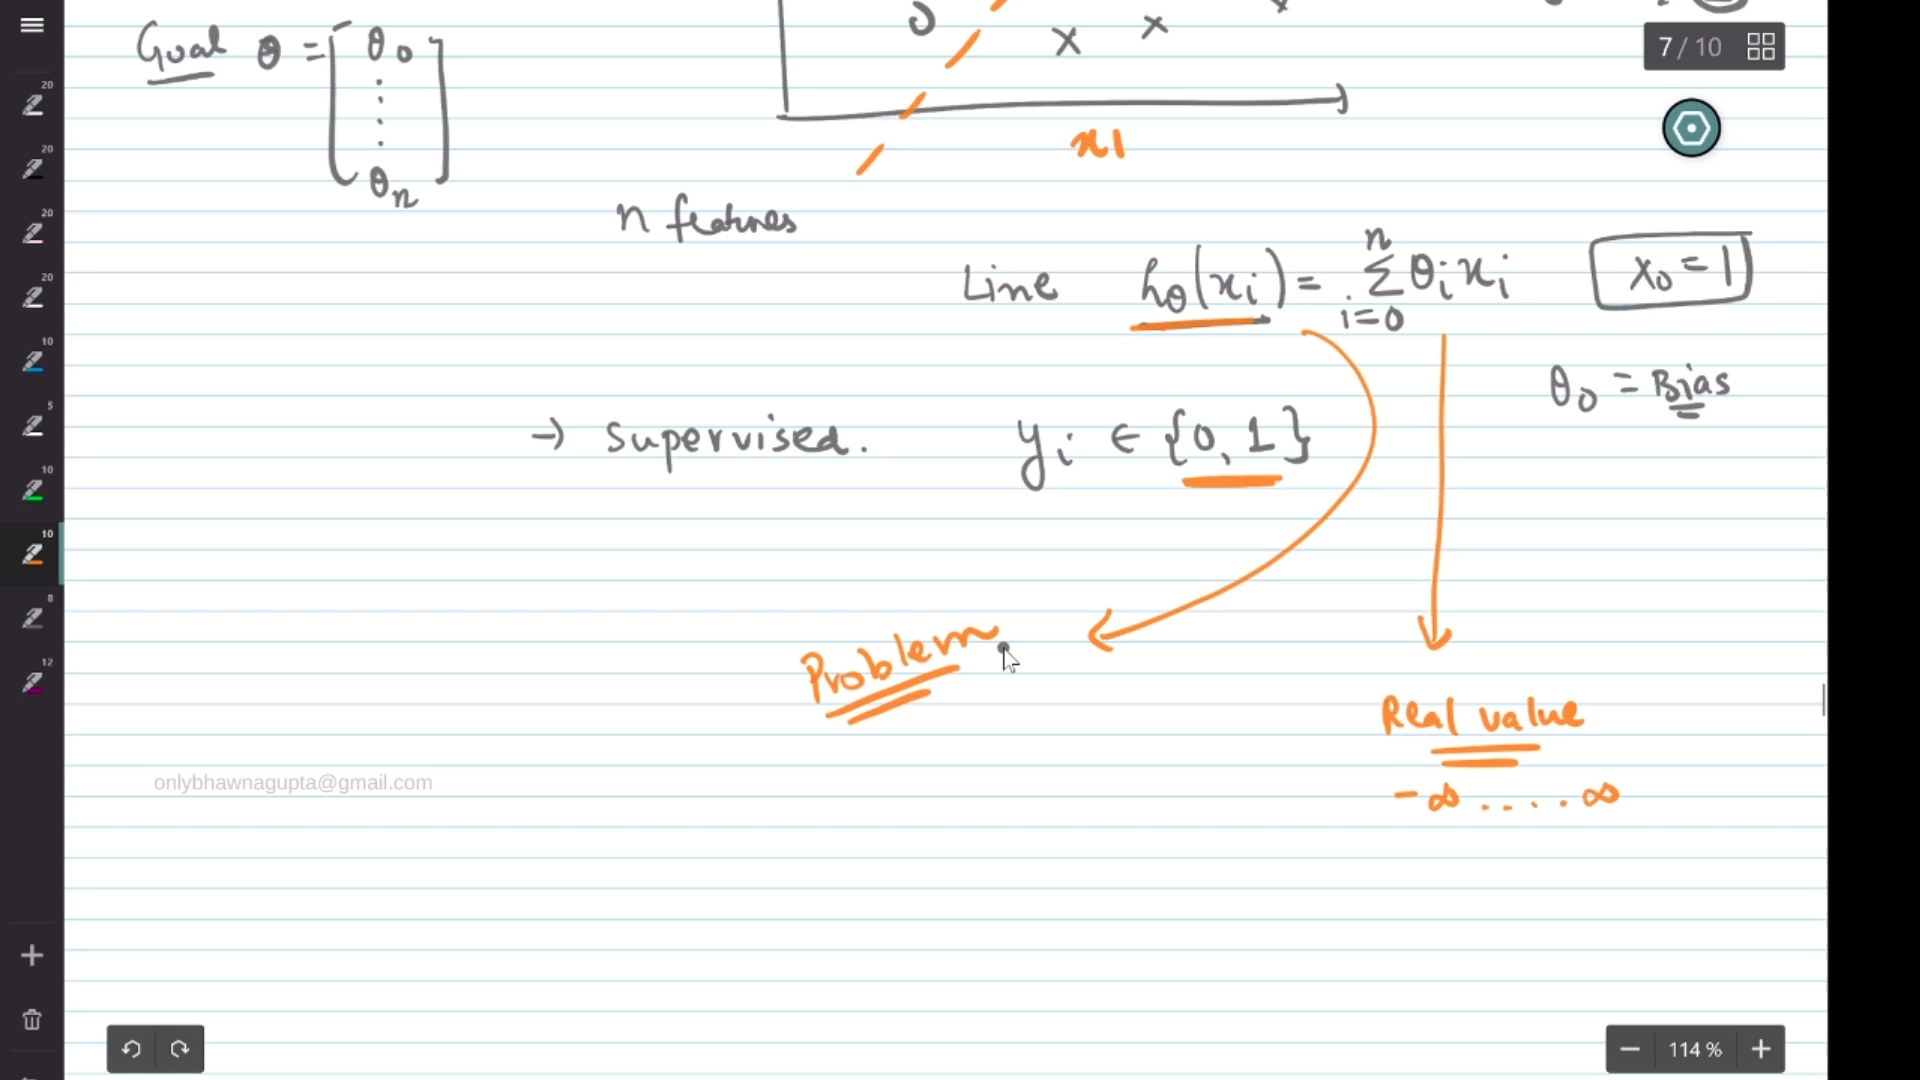 20
20
20
20
10
5
10
10
8
12
7 / 10
Goal θ = [ θ0
⋮
θn ]
0 x x x
x1
n features
Line hθ(xi) = n Σ i=0 θi xi x0 = 1
θ0 = Bias
→ supervised. yi ∈ {0, 1}
Problem
Real value
-∞ ..... ∞
onlybhawnagupta@gmail.com
114 %